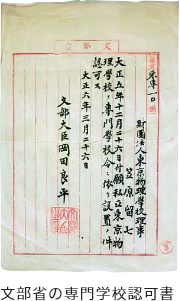 文部省
東専一〇
財團法人東京物理學校理事
笠原留七
大正五年十二月二十六日付願私立東京物
理學校ヲ專門學校令ニ依リ設置ノ件
認可ス
大正六年三月二十六日
文部大臣岡田良平
文部省の専門学校認可書